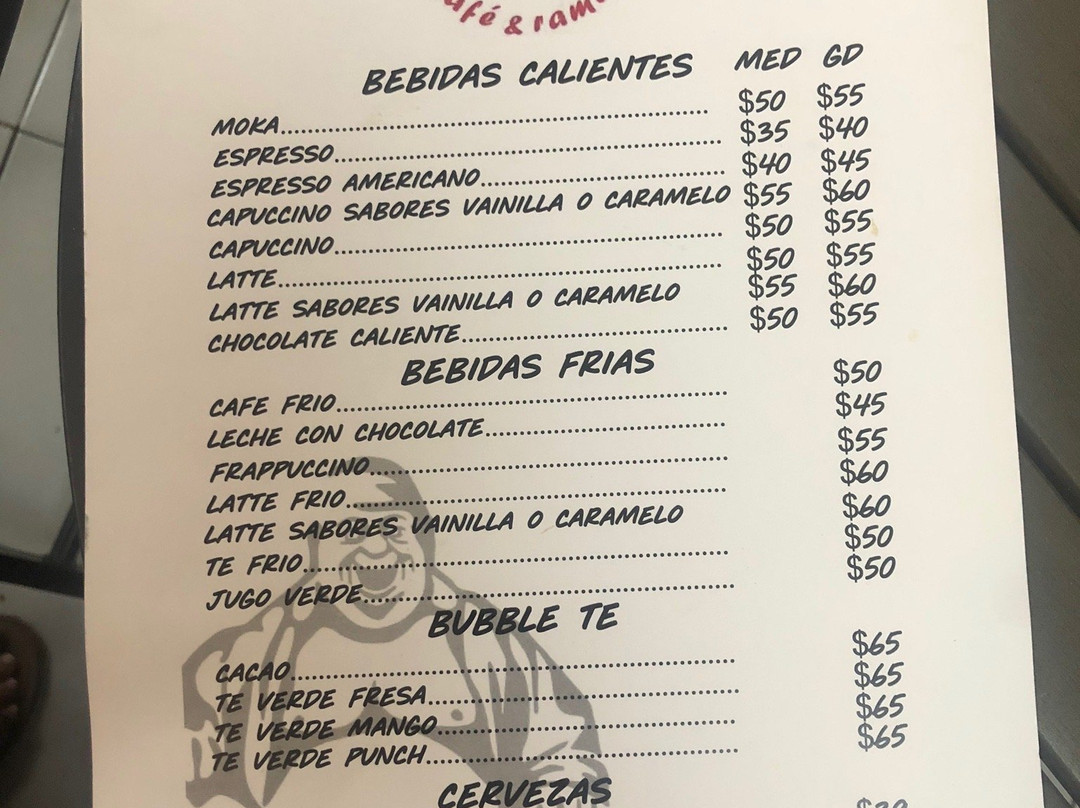 café & ram
BEBIDAS CALIENTES MED GD
MOKA........ $50 $55
ESPRESSO........ $35 $40
ESPRESSO AMERICANO........ $40 $45
CAPUCCINO SABORES VAINILLA O CARAMELO $55 $60
CAPUCCINO........ $50 $55
LATTE........ $50 $55
LATTE SABORES VAINILLA O CARAMELO $55 $60
CHOCOLATE CALIENTE........ $50 $55
BEBIDAS FRIAS
CAFE FRIO........ $50
LECHE CON CHOCOLATE........ $45
FRAPPUCCINO........ $55
LATTE FRIO........ $60
LATTE SABORES VAINILLA O CARAMELO $60
TE FRIO........ $50
JUGO VERDE........ $50
BUBBLE TE
CACAO........ $65
TE VERDE FRESA........ $65
TE VERDE MANGO........ $65
TE VERDE PUNCH........ $65
CERVEZAS